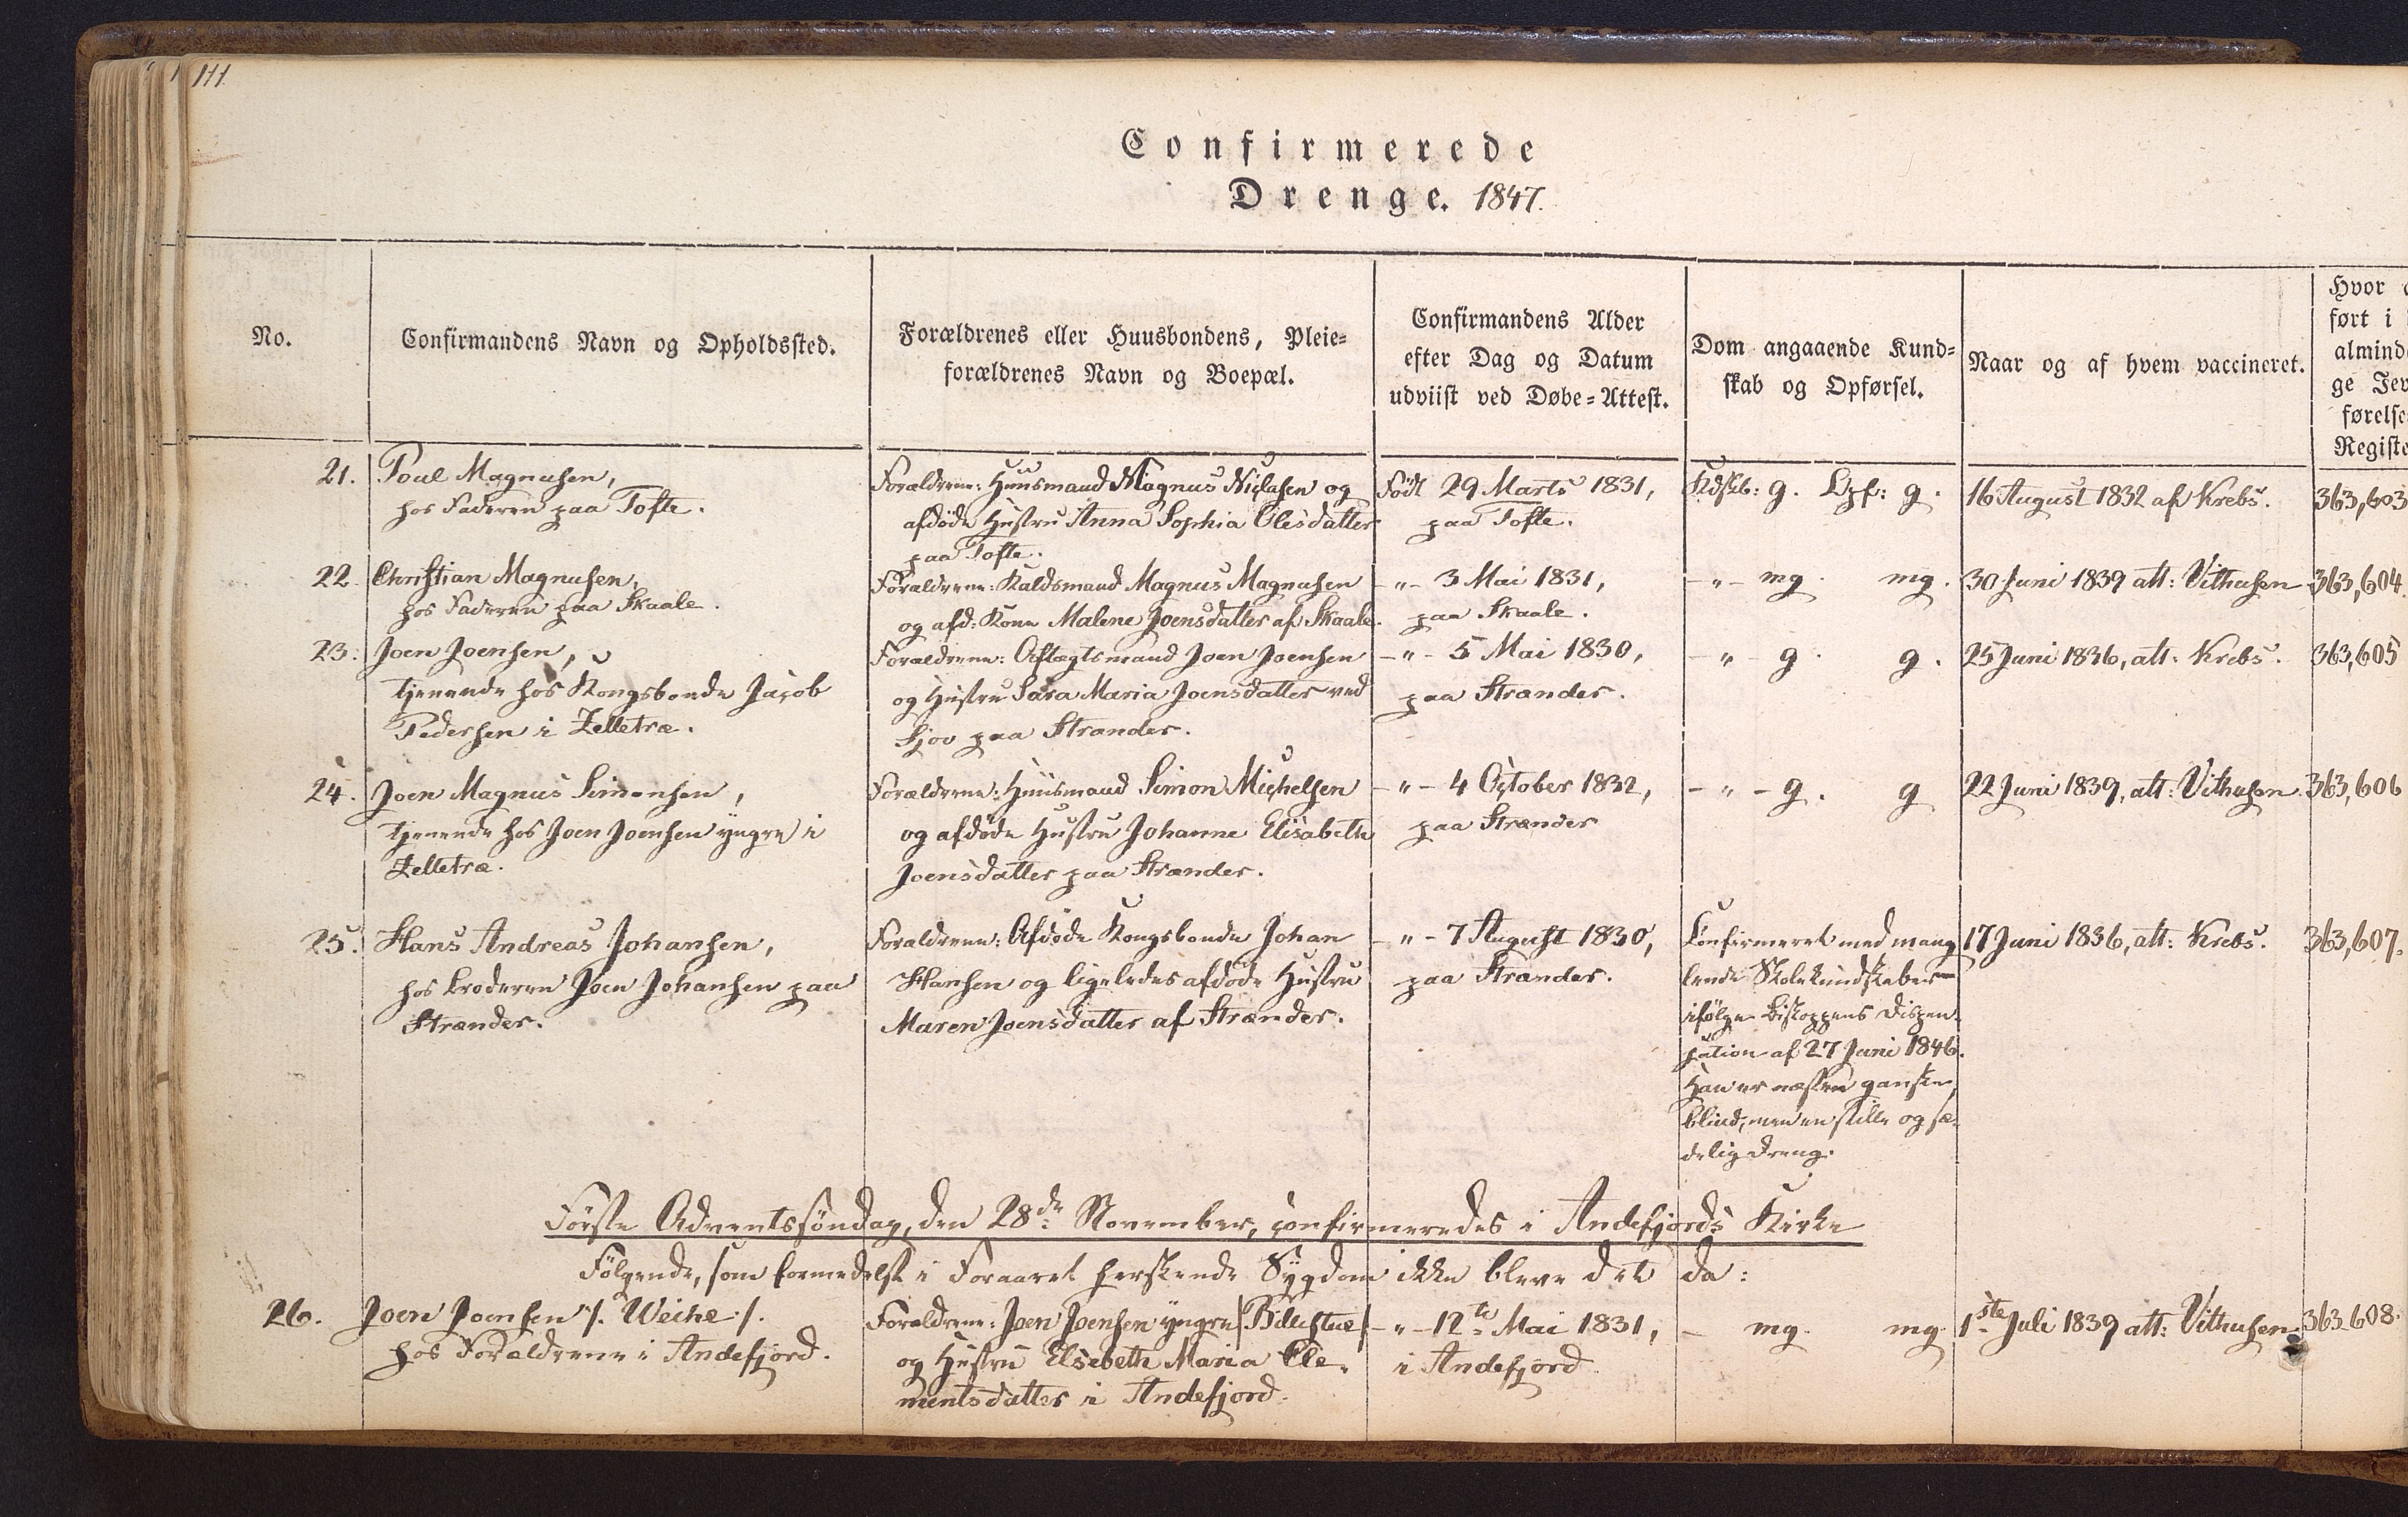 111
Confirmerede
Drenge. 1847.
No.
Confirmandens Navn og Opholdssted.
Forældrenes eller Huusbondens, Pleie=
forældrenes Navn og Boepæl.
Confirmandens Alder
efter Dag og Datum
udviist ved Døbe=Attest.
Dom angaaende Kund=
skab og Opførsel.
Naar og af hvem vaccineret.
Hvor
ført i
almind
ge Jev
førelse
Registe
21. Poul Magnusen,
hos Faderen paa Tofte.
Forældrene: Huusmand Magnus Niclasen og
afdøde Hustru Anna Sophia Olesdatter
paa Tofte.
Født 29 Marts 1831,
paa Tofte.
Kdskb: g. Opf: g.
16 August 1832 af Krebs.
363,603
22. Christian Magnusen,
hos Faderen paa Skaale.
Forældrene: Kaldsmand Magnus Magnusen
og afd: Kone Malene Joensdatter af Skaale.
-"- 3 Mai 1831,
paa Skaale.
-"- mg. mg.
30 Juni 1839 att: Vithusen
363,604.
23. Joen Joensen,
tjenende hos Kongsbonde Jacob
Pedersen i Zelletræ.
Forældrene: Aftægtsmand Joen Joensen
og Hustru Sara Maria Joensdatter ved
Sjov paa Strænder.
-"- 5 Mai 1830,
paa Strænder.
-"- g. g.
25 Juni 1836, att: Krebs.
363,605
24. Joen Magnus Simonsen,
tjenende hos Joen Joensen yngre i
Zelletræ.
Forældrene: Huusmand Simon Michelsen
og afdøde Hustru Johanne Elisabeth
Joensdatter paa Strænder.
-"- 4 October 1832,
paa Strænder
-"- g. g
22 Juni 1839, att: Vithusen.
363,606
25. Hans Andreas Johansen,
hos Broderen Joen Johansen paa
Strænder.
Forældrene: Afdøde Kongsbonde Johan
Hansen og ligeledes afdøde Hustru
Maren Joensdatter af Strænder.
-"- 7 August 1830,
paa Strænder.
Confirmeret med mang
lende Skolekundskaber
ifølge Biskoppens Dispen-
sation af 27 Juni 1846.
Han er næsten ganske
blind, men en stille og sæ-
delig Dreng.
17 Juni 1836, att: Krebs.
363,607.
Første Adventssøndag, den 28de November, confirmeredes i Andefjords Kirke
Følgende, som formedelst i Foraaret herskende Sygdom ikke bleve det da:
26. Joen Joensen /: Weihe :/.
hos Forældrene i Andefjord.
Forældrene: Joen Joensen yngre
og Hustru Elsebeth Maria Cle-
mentsdatter i Andefjord.
-"- 12te Mai 1831,
i Andefjord
- mg. mg.
1ste Juli 1839 att: Vithusen.
363.608.